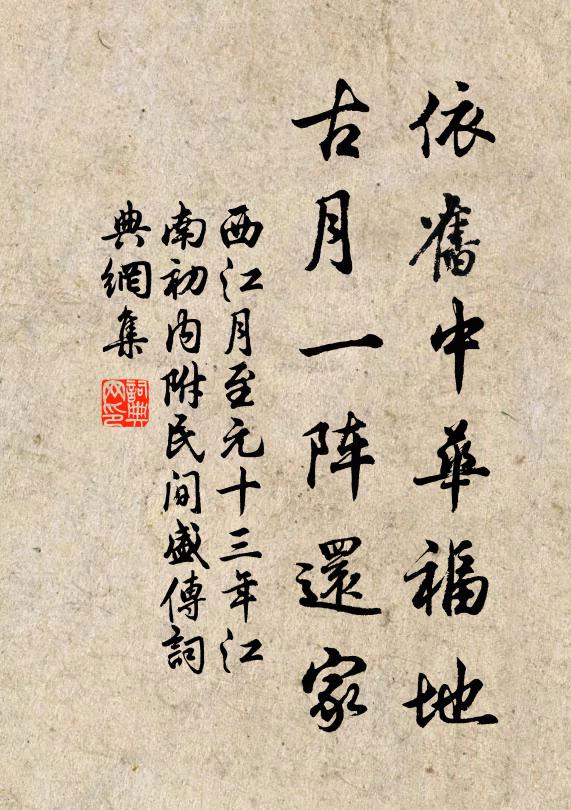 依舊中華福地
古月一阵還家
西江月至元十三年江
南初内附民间盛傳詞
典網集
詞典网印